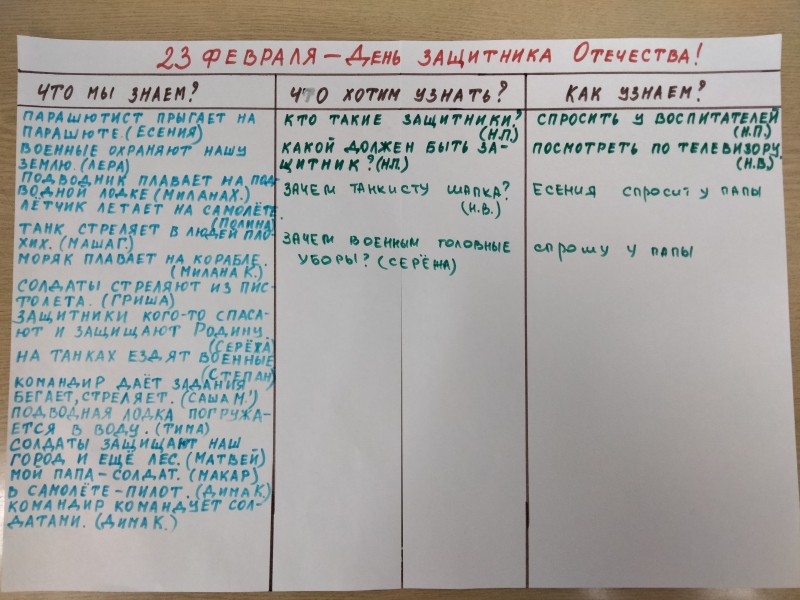 23 ФЕВРАЛЯ – ДЕНЬ ЗАЩИТНИКА ОТЕЧЕСТВА!
ЧТО МЫ ЗНАЕМ?
ПАРАШЮТИСТ ПРЫГАЕТ НА
ПАРАШЮТЕ.(ЕСЕНИЯ)
ВОЕННЫЕ ОХРАНЯЮТ НАШУ
ЗЕМЛЮ.(ЛЕРА)
ПОДВОДНИК ПЛАВАЕТ НА ПОД-
ВОДНОЙ ЛОДКЕ (МИЛАНАХ.)
ЛЁТЧИК ЛЕТАЕТ НА САМОЛЁТЕ.
(ПОЛИНА)
ТАНК СТРЕЛЯЕТ В ЛЮДЕЙ ПЛО-
ХИХ. (МАША Г.)
МОРЯК ПЛАВАЕТ НА КОРАБЛЕ.
(МИЛАНА К.)
СОЛДАТЫ СТРЕЛЯЮТ ИЗ ПИС-
ТОЛЕТА. (ГРИША)
ЗАЩИТНИКИ КОГО-ТО СПАСА-
ЮТ И ЗАЩИЩАЮТ РОДИНУ.
(СЕРЁЖА)
НА ТАНКАХ ЕЗДЯТ ВОЕННЫЕ
(СТЕПАН)
КОМАНДИР ДАЁТ ЗАДАНИЯ
БЕГАЕТ, СТРЕЛЯЕТ. (САША М.)
ПОДВОДНАЯ ЛОДКА ПОГРУЖА-
ЕТСЯ В ВОДУ. (ТИМА)
СОЛДАТЫ ЗАЩИЩАЮТ НАШ
ГОРОД И ЕЩЁ ЛЕС. (МАТВЕЙ)
МОЙ ПАПА – СОЛДАТ. (МАКАР)
В САМОЛЁТЕ – ПИЛОТ. (ДИМА К.)
КОМАНДИР КОМАНДУЕТ СОЛ-
ДАТАМИ. (ДИМА К.)
ЧТО ХОТИМ УЗНАТЬ?
КТО ТАКИЕ ЗАЩИТНИКИ?
(Н.П.)
КАКОЙ ДОЛЖЕН БЫТЬ ЗА-
ЩИТНИК? (Н.П.)
ЗАЧЕМ ТАНКИСТУ ШАПКА?
(Н.В.)
ЗАЧЕМ ВОЕННЫМ ГОЛОВНЫЕ
УБОРЫ? (СЕРЁЖА)
КАК УЗНАЕМ?
СПРОСИТЬ У ВОСПИТАТЕЛЕЙ
(Н.П.)
ПОСМОТРЕТЬ ПО ТЕЛЕВИЗОРУ.
(Н.В.)
ЕСЕНИЯ СПРОСИТ У ПАПЫ
СПРОШУ У ПАПЫ